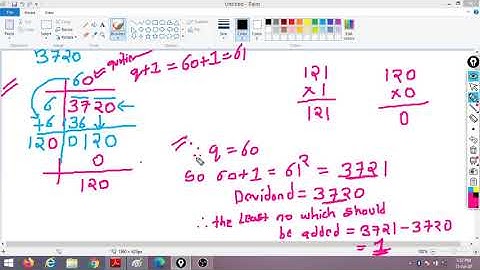 3720
60 quotient
q+1 = 60+1 = 61
3720
+6 36
120 0120
0
120
121
×1
121
120
×0
0
∴ q = 60
So 60+1 = 61² = 3721
Devidend = 3720
∴ the least no which should
be added = 3721-3720
= 1